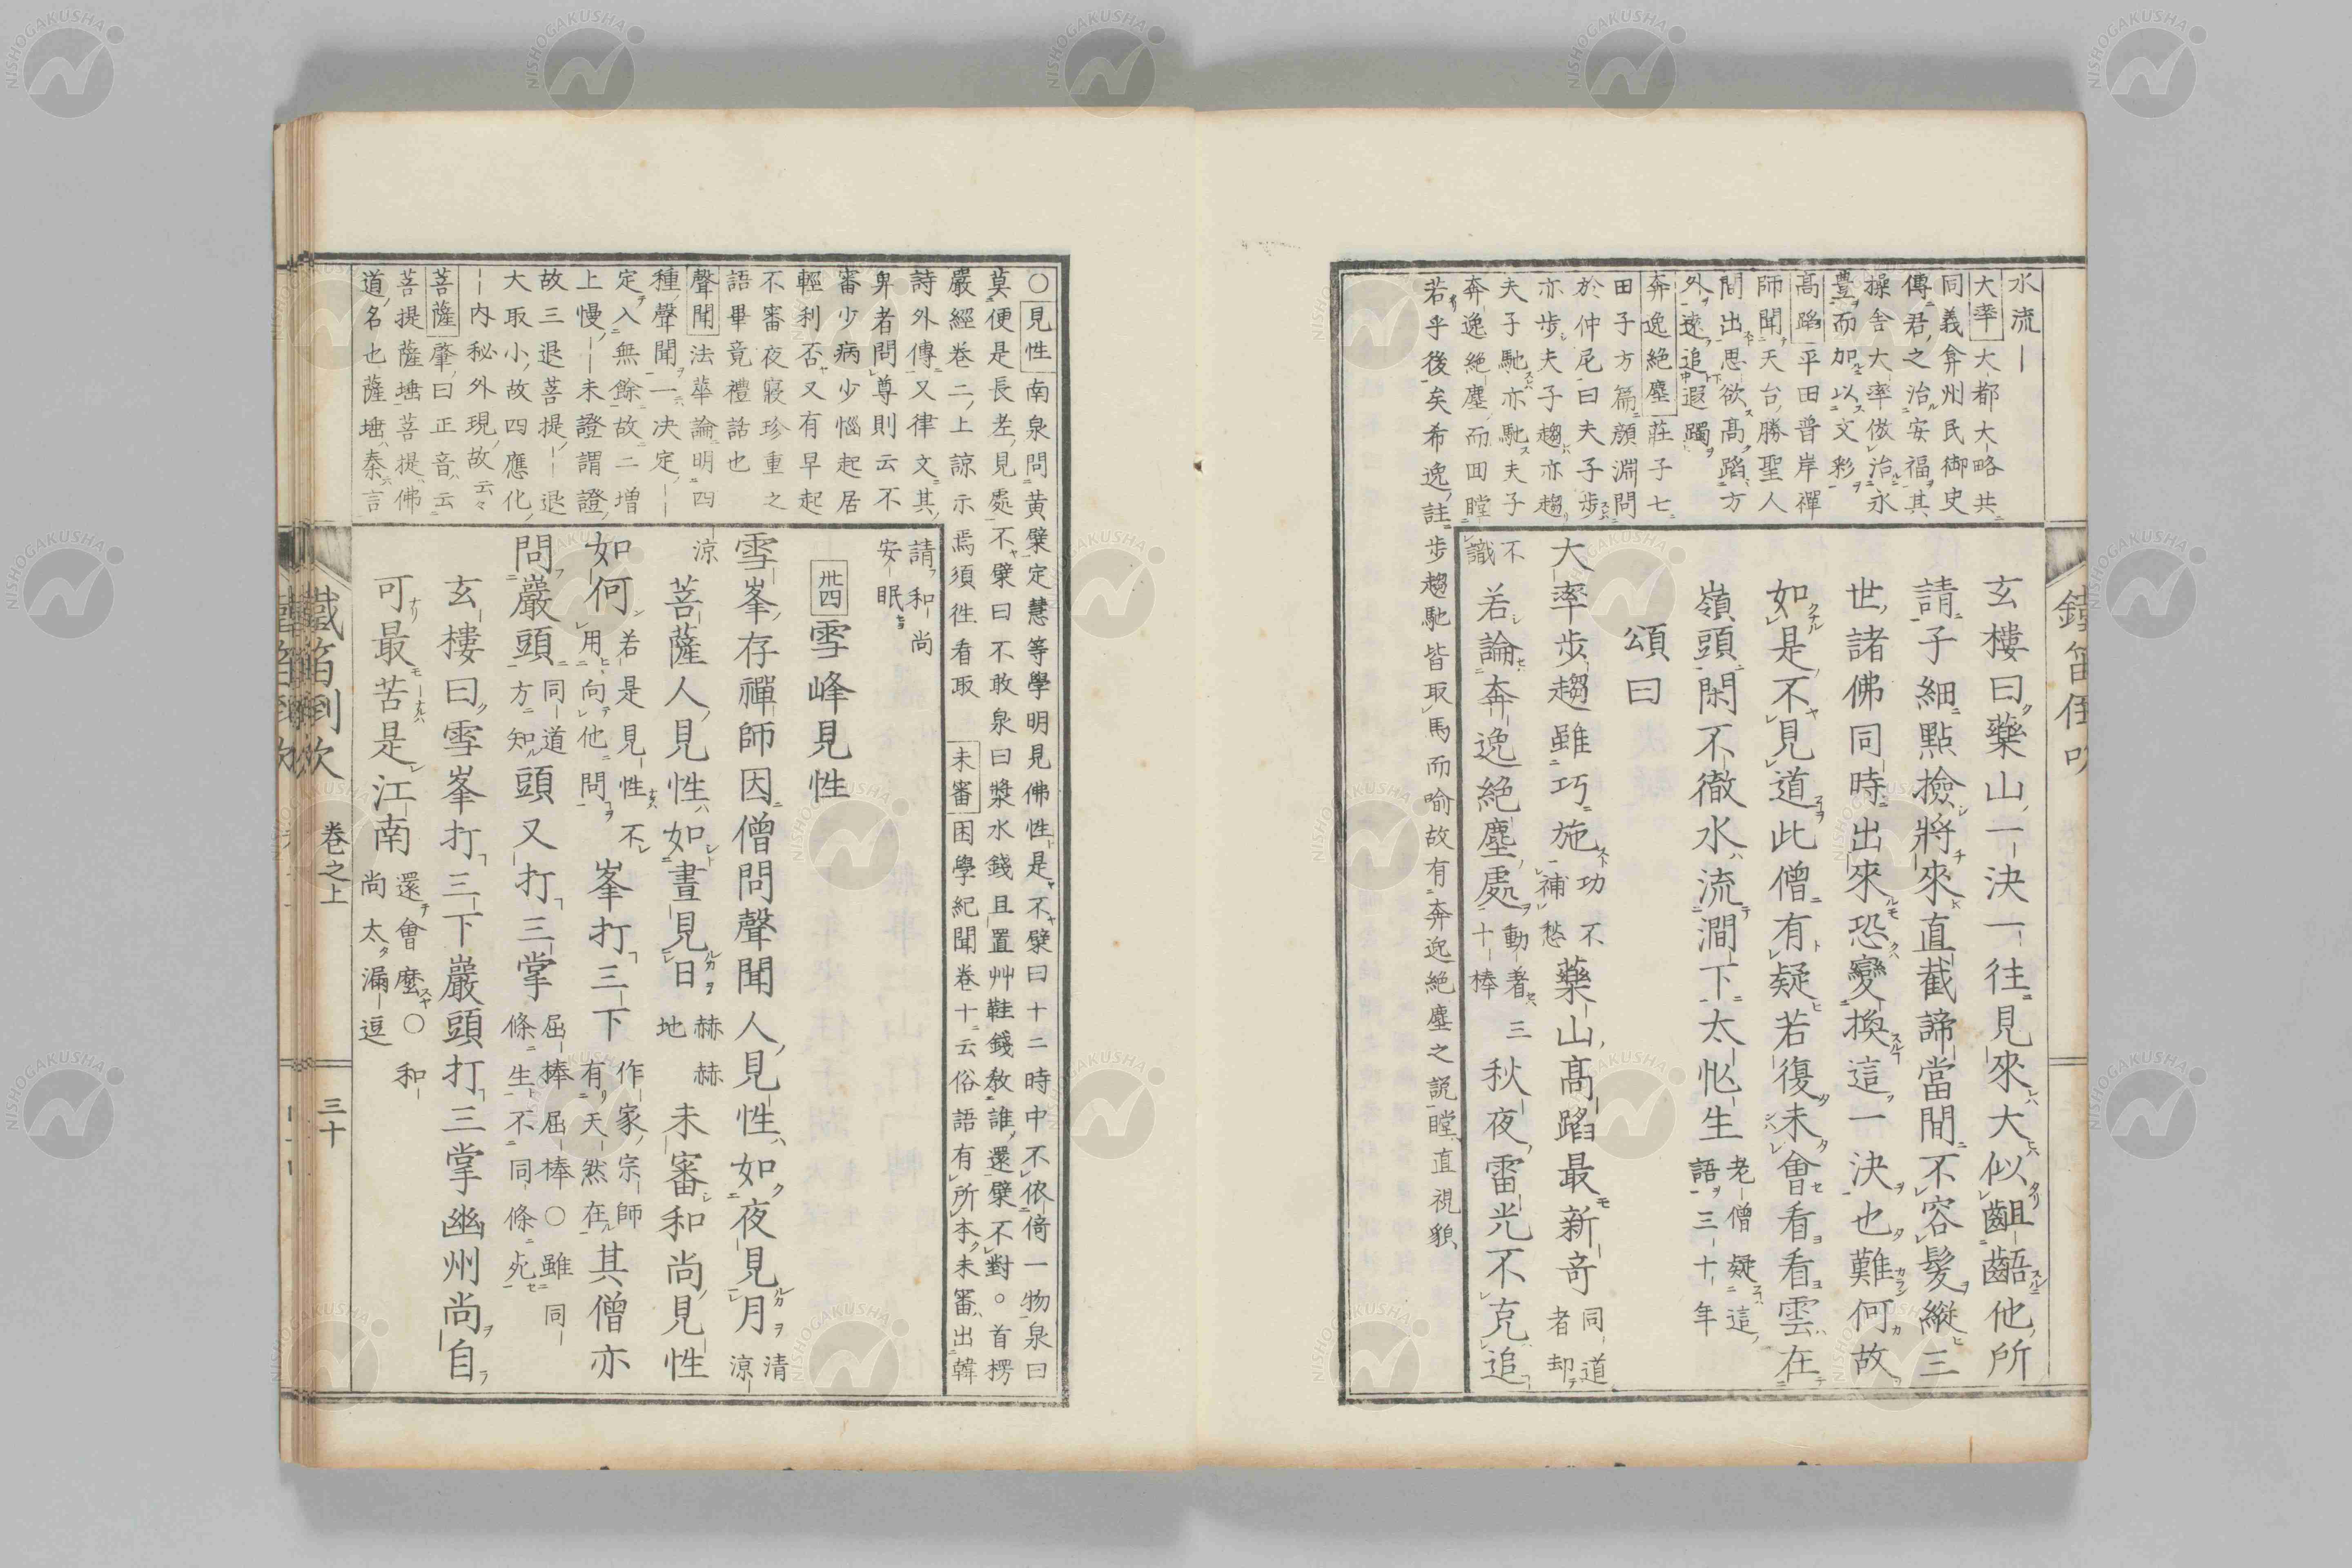 水流｜
大率 大都大略共
同義弇州民御史
傳君之治安福其
操舎大率倣治永
豊而加以文彩
高蹈 平田普岸禪
師聞天台勝聖人
間出思欲高蹈方
外遠追遐躅
奔逸絶塵 莊子七
田子方篇顔淵問
於仲尼曰夫子歩
亦歩夫子趨亦趨
夫子馳亦馳夫子
奔逸絶塵而回瞠
若乎後矣希逸註歩趨馳皆取馬而喻故有奔逸絶塵之説瞠直視貌
玄樓曰藥山一決一往見來大似齟齬他所
請子細點撿將來直截諦當間不容髮縱三
世諸佛同時出來恐變換這一決也難何故
如是不見道此僧有疑若復未會看看雲在
嶺頭閑不徹水流澗下太忙生 老僧疑這語三十年
頌曰
大率歩趨雖巧施 功不補愁 藥山高蹈最新奇 同道者却
不識 若論奔逸絶塵處 動著三十棒 秋夜雷光不克追
鐵笛倒吹
○見性 南泉問黄檗定慧等學明見佛性是不檗曰十二時中不依倚一物泉曰
莫便是長老見處不檗曰不敢泉曰漿水錢且置艸鞋錢教誰還檗不對。首楞
嚴經卷二上諒示焉須徃看取 未審 困學紀聞卷十云俗語有所李未審出韓
詩外傳又律文其
卑者問尊則云不
審少病少惱起居
輕利否又有早起
不審夜寢珍重之
語畢竟禮話也
聲聞 法華論明四
種聲聞一決定｜｜
定入無餘故二增
上慢｜｜未證謂證
故三退菩提｜｜退
大取小故四應化
｜内秘外現故云々
菩薩 肇曰正音云
菩提薩埵菩提佛
道名也薩埵秦言
請和尚安眠
卅四 雪峰見性
雪峯存禪師因僧問聲聞人見性如夜見月 清涼
涼 菩薩人見性如晝見日 赫赫地 未審和尚見性
如何 若是見性不用向他問 峯打三下 作家宗師有天然在 其僧亦
問嚴頭 同道方知 頭又打三掌 屈棒屈棒○雖同條生不同條死
玄樓曰雪峯打三下嚴頭打三掌幽州尚自
可最苦是江南 還會麼○和尚太漏逗
鐵笛倒吹 卷之上 三十